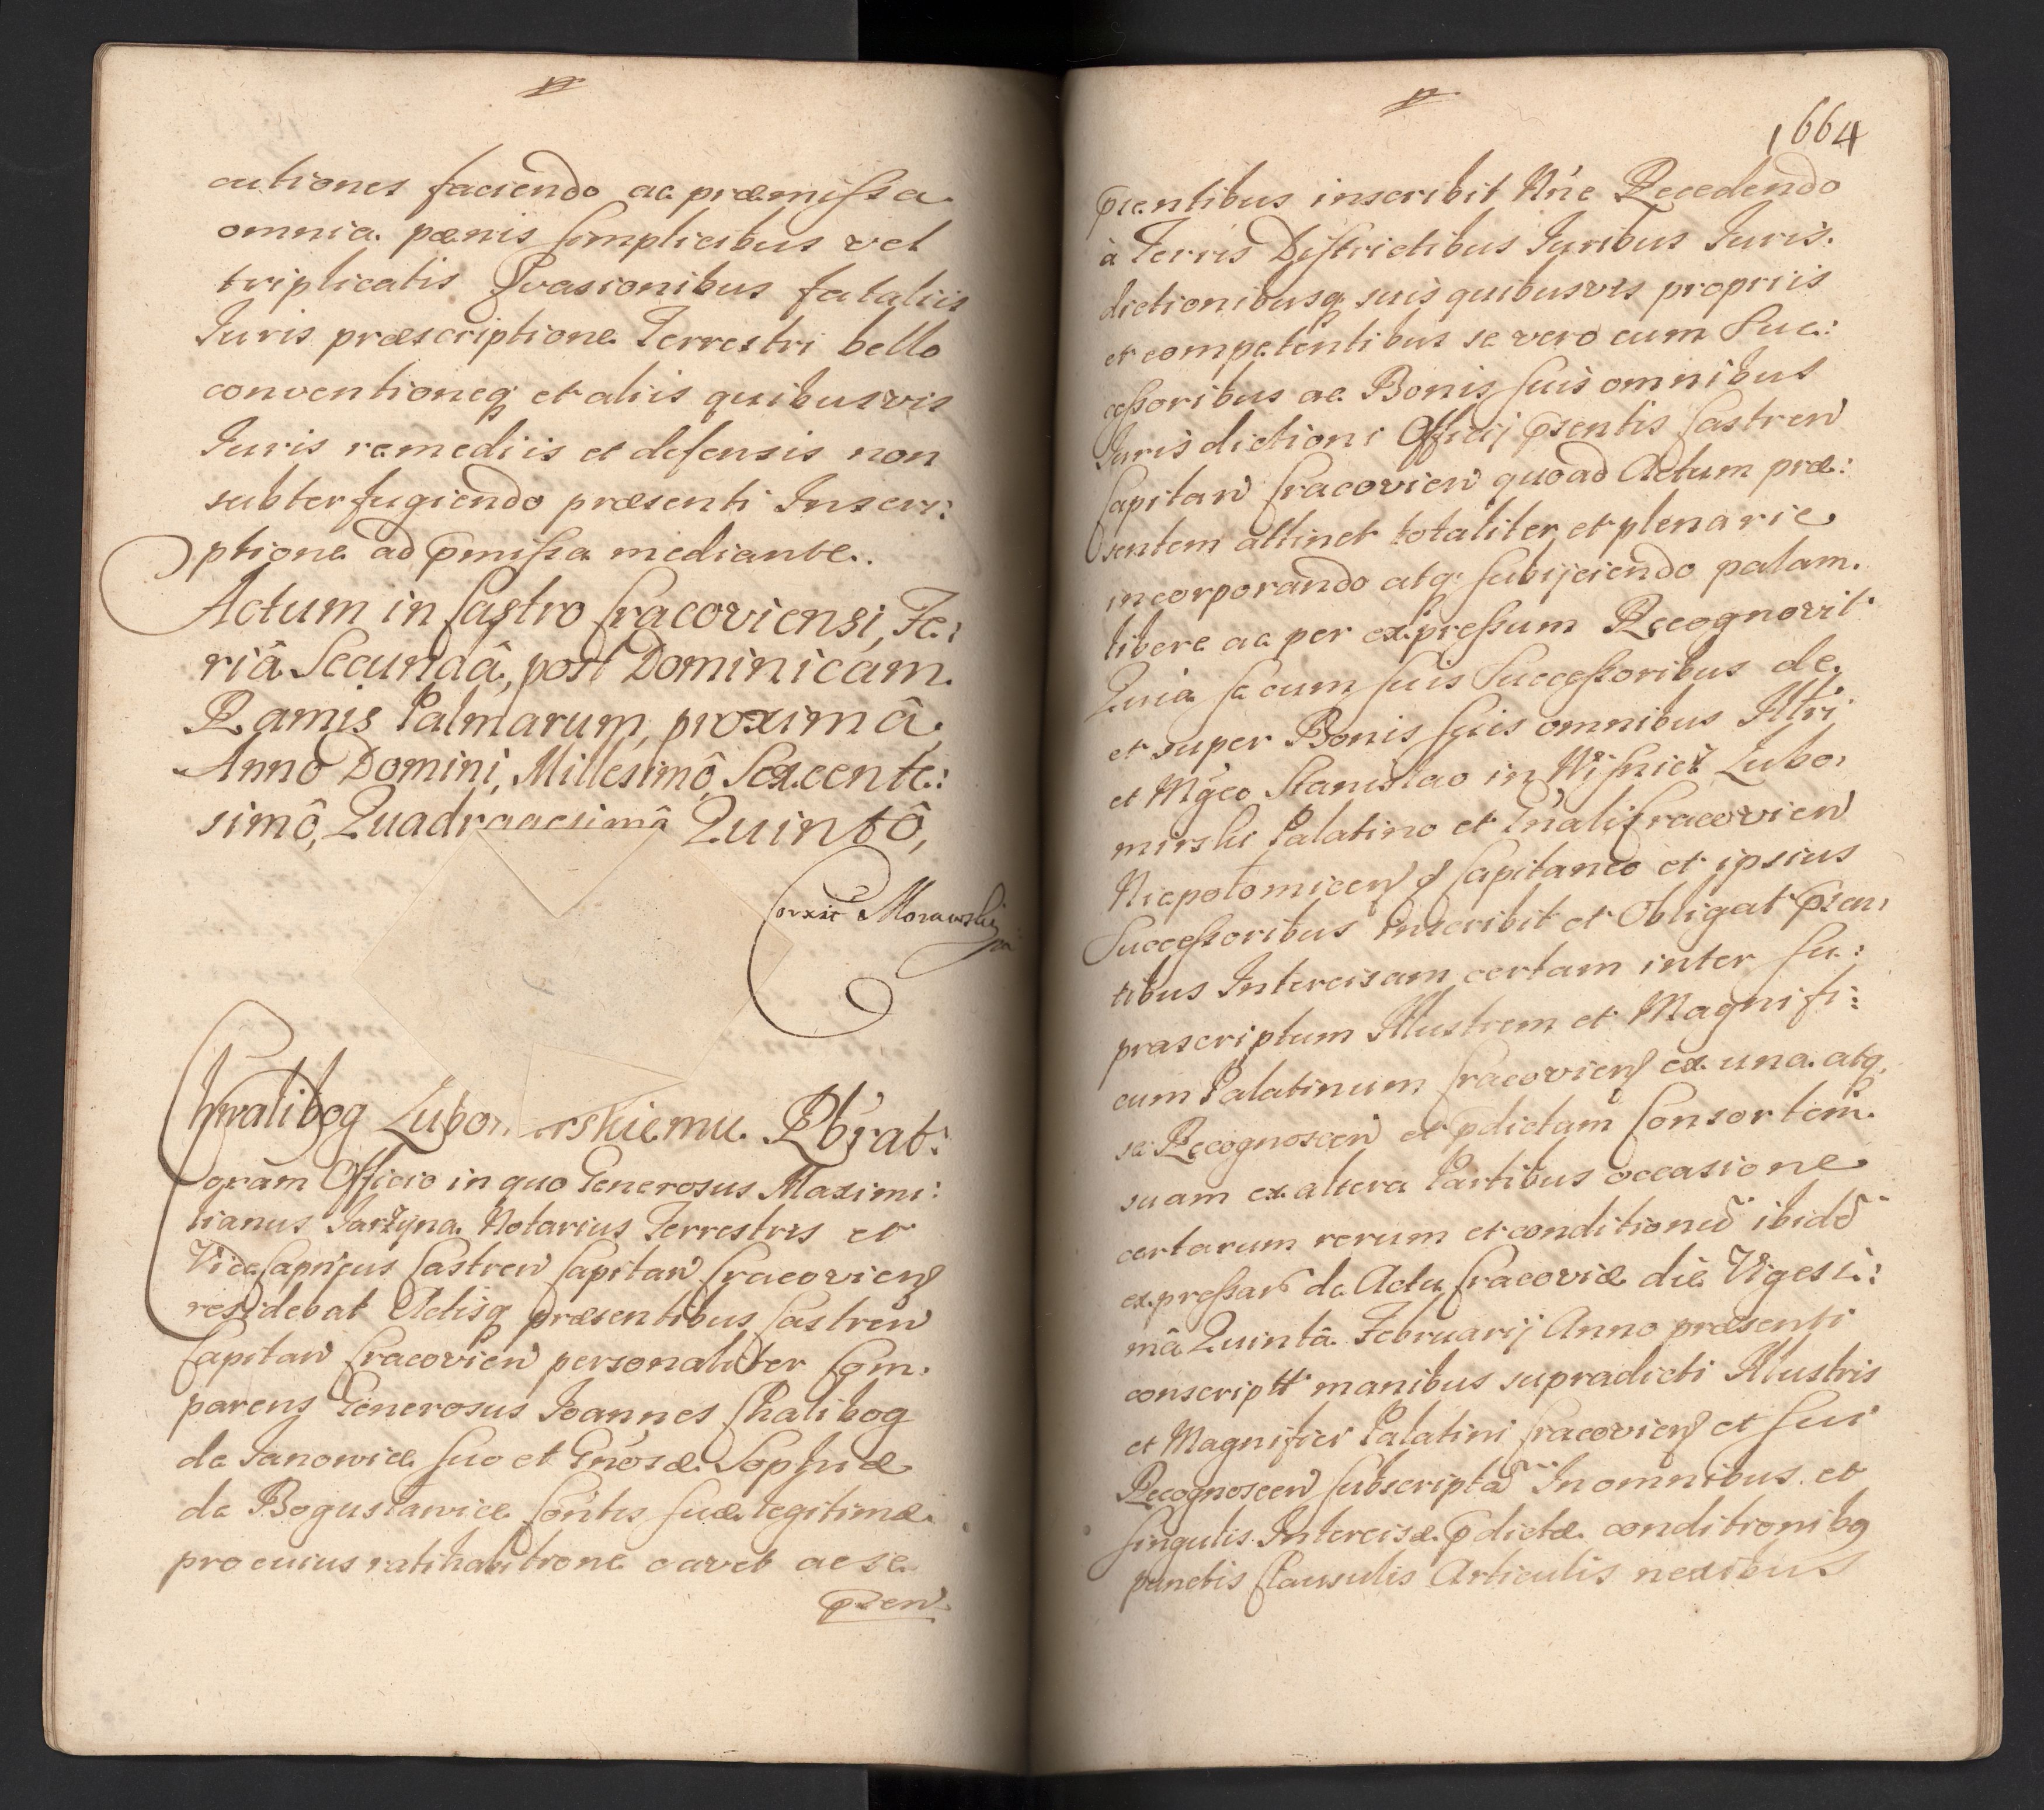 cutiones faciendo ac præmissa
omnia pœnis simplicibus vel
triplicatis Evasionibus fataliis
Iuris præscriptione Terrestri bello
conventioneq et aliis quibusvis
Iuris remediis et defensis non
subterfugiendo præsenti Inscri:
ptione ad pmissa mediante.
Actum in Castro Cracoviensi, Fe:
riâ Secundâ, post Dominicam
Ramis Palmarum, proximâ,
Anno Domini, Millesimô Sexcente:
simô, Quadragesimô Quintô,
Corxit Morawski
Chwalibog Lubomirskiemu Rbrat:
gram Officio in quo Generosus Maximi:
lianus Jarzyna Notarius Terrestris et
ViceCapneus Castren Capitan Cracovien
residebat Actisq præsentibus Castren
Capitan Cracovien personaliter Com:
parens Generosus Joannes Chalibog
de Janowice suo et Gnosæ Sophiæ
de Bogusławice Contis suæ legitimæ
pro cuius ratihabitione cavet ac se
pzen
1664
pientibus inscribit Nne Recedendo
à Terris Districtibus Iuribus Iuris:
dictionibusq suis quibusvis propriis
et competentibus se vero cum Suc:
cessoribus ac Bonis suis omnibus
Iurisdictioni Officij psentis Castren
Capitan Cracovien quoad Actum præ:
sentem attinet totaliter et plenarie
incorporando atq subijciendo palam
libere ac per expressum Recognovit
Quia se cum suis Successoribus de
et super Bonis suis omnibus Illri
et Mgco Stanislao in Wisnicz Lubo:
mirski Palatino et Gnali Cracovien
Niepołomicen Capitaneo et ipsius
Successoribus inscribit et Obligat pzen:
tibus Intercisam certam inter su:
prascriptum Illustrem et Magnifi:
cum Palatinum Cracovien ex una atq
se Recognoscen et pdictam Consortem
suam ex altera Partibus occasione
certarum rerum et conditionũ ibidẽ
expressar de Actu Cracoviæ die Vigesi:
mâ Quintâ Februarij Anno præsenti
conscript manibus supradicti Illustris
et Magnifici Palatini Cracovien et sui
Recognoscen subscriptã In omnibus et
singulis Intercisæ pdictæ conditionibq
punctis Clausulis Articulis nexibus